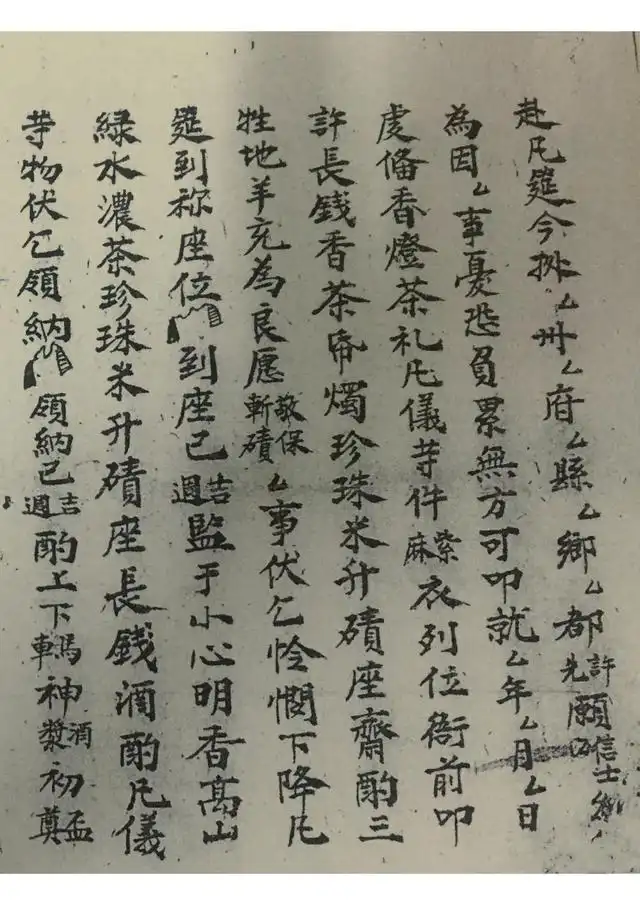 赴凡筵今挑厶州厶府厶縣厶鄉厶都許先願信士
為因厶事憂恐負累無方可叩就厶年厶月厶日
虔俻香燈茶礼凡儀䓁件紫麻衣列位衙前叩
許長錢香茶帋燭珍珠米升磧座齋酌三
牲地羊充為良愿敬保斬磧厶事伏乞怜憫下降凡
筵到祢座位到座已吉週監于小心明香高山
緑水濃茶珍珠米升磧座長錢酒酌凡儀
䓁物伏乞領納領納已吉週酌上下馬神酒漿初盃奠